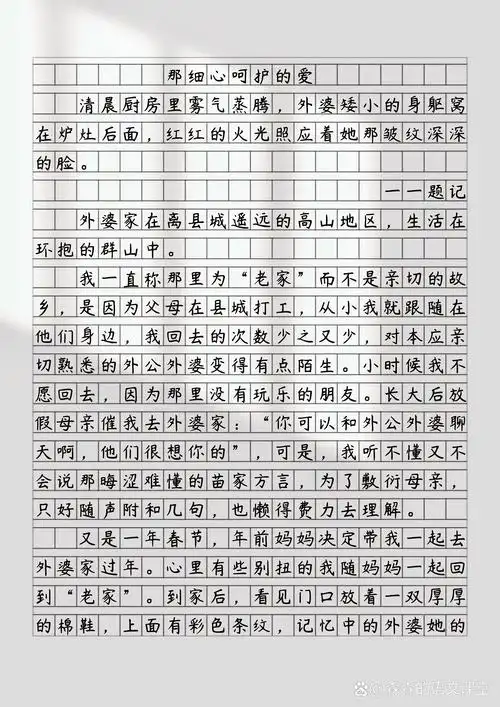 那细心呵护的爱
清晨厨房里雾气蒸腾，外婆矮小的身躯窝
在炉灶后面，红红的火光照应着她那皱纹深深
的脸。
——题记
外婆家在离县城遥远的高山地区，生活在
环抱的群山中。
我一直称那里为“老家”而不是亲切的故
乡，是因为父母在县城打工，从小我就跟随在
他们身边，我回去的次数少之又少，对本应亲
切熟悉的外公外婆变得有点陌生。小时候我不
愿回去，因为那里没有玩乐的朋友。长大后放
假母亲催我去外婆家：“你可以和外公外婆聊
天啊，他们很想你的”，可是，我听不懂又不
会说那晦涩难懂的苗家方言，为了敷衍母亲，
只好随声附和几句，也懒得费力去理解。
又是一年春节，年前妈妈决定带我一起去
外婆家过年。心里有些别扭的我随妈妈一起回
到“老家”。到家后，看见门口放着一双厚厚
的棉鞋，上面有彩色条纹，记忆中的外婆她的